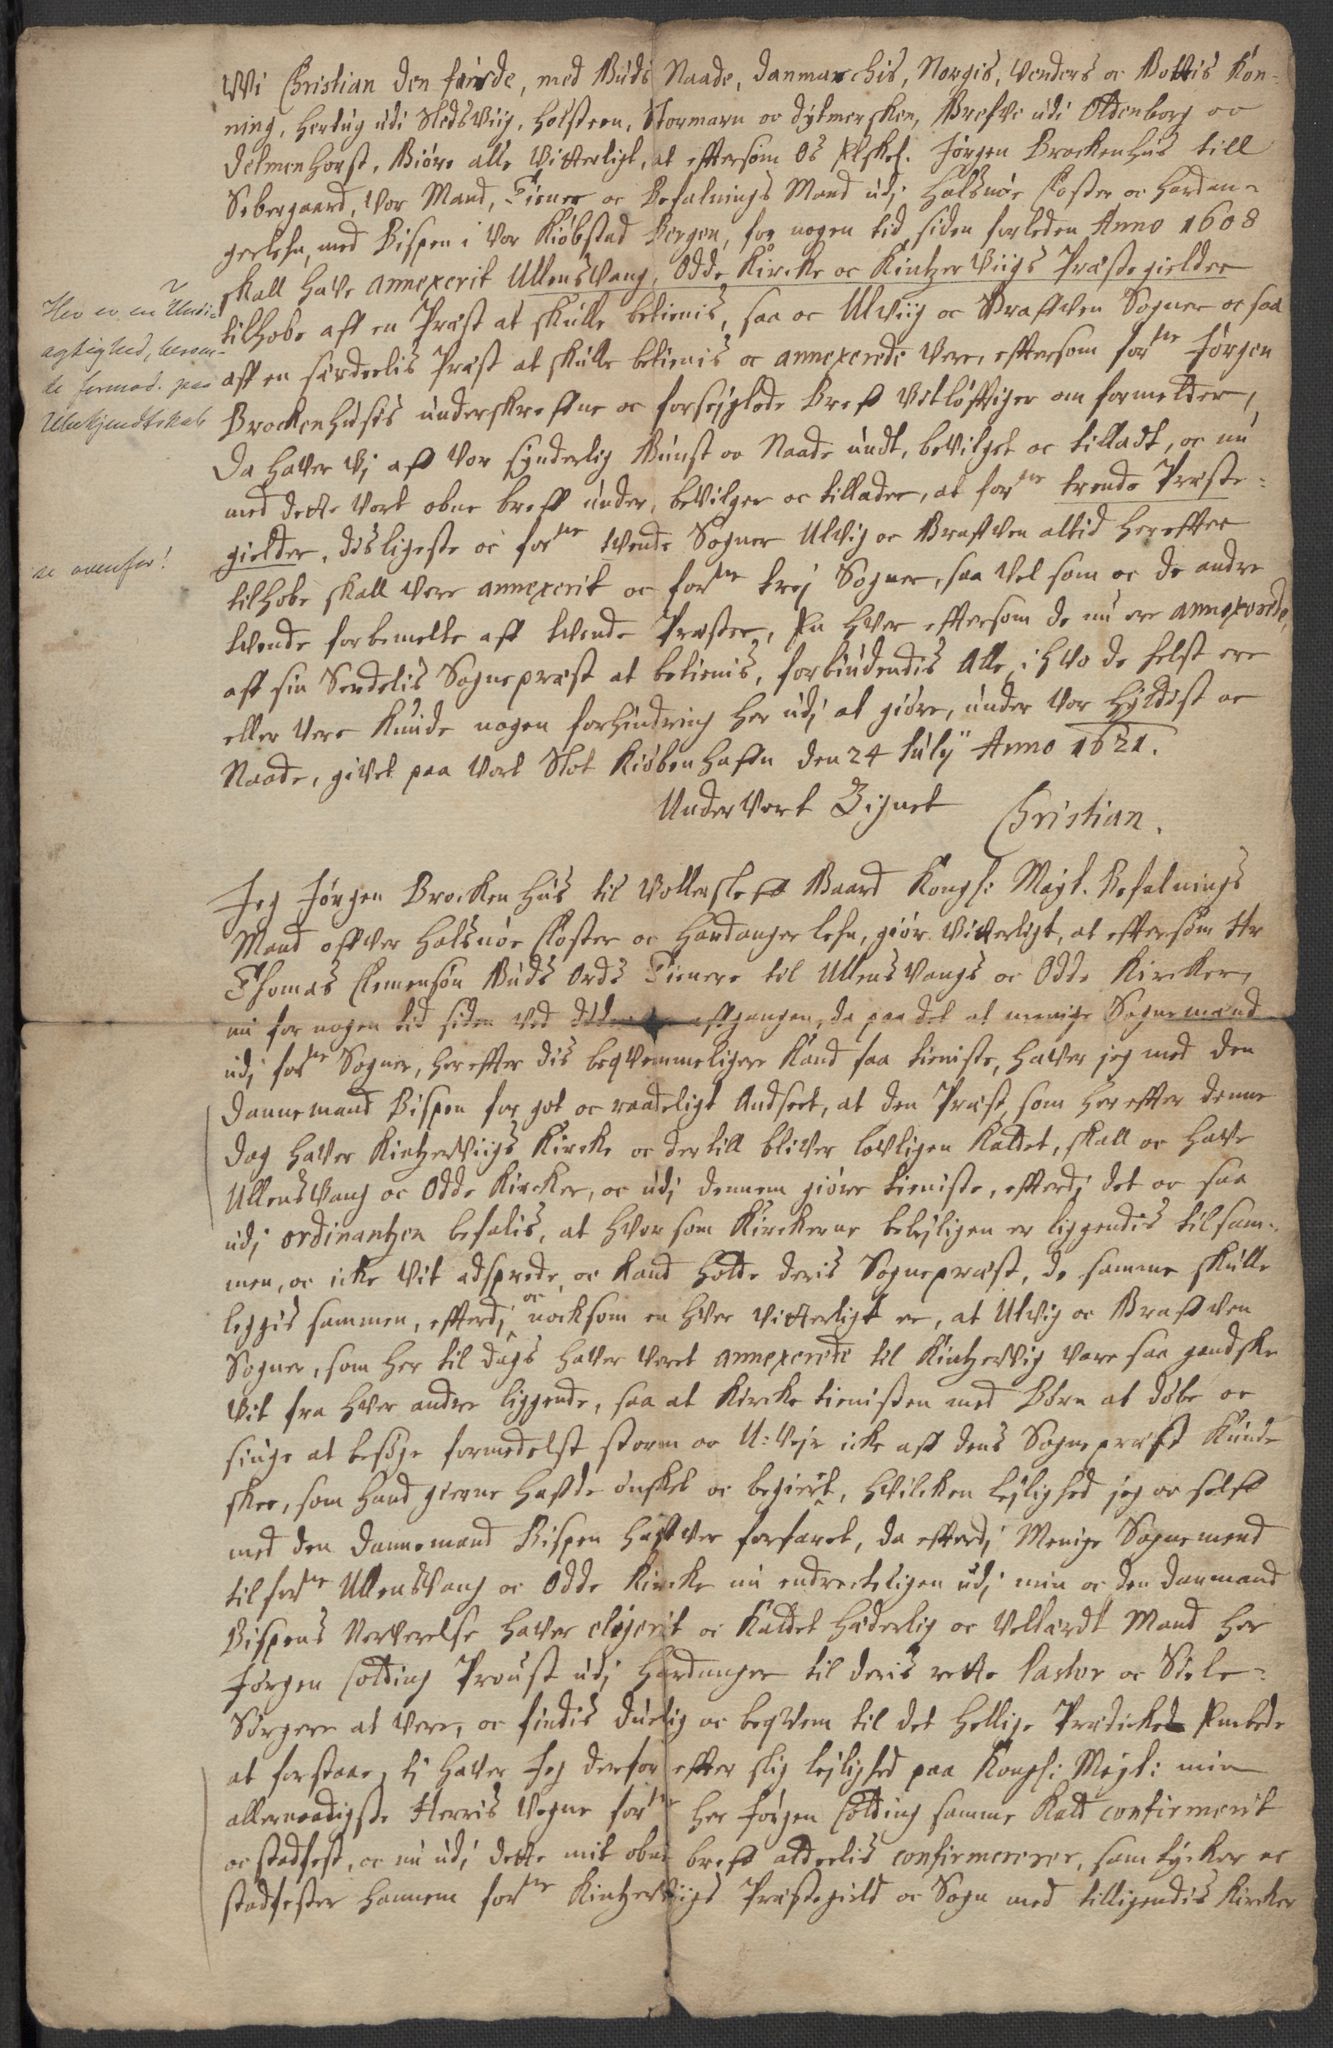 Wi Christian den fierde, med Guds Naade, Danmarckis, Norgis, Venders oc Gottis Kon-
ning, Hertug udi Sledsviig, Holsteen, Stormarn oc Dytmersken, Grefve udi Oldenborg oc
Delmenhorst, Giøre alle Vitterligt, at eftersom Os Elskel. Jørgen Brockenhus till
Sebergaard, Vor Mand, Tiener oc Befalnings Mand udj Halsnøe Closter oc Hardan-
gerlehn, med Bispen i Vor Kiøbstad Bergen, for nogen tid siden forleden Anno 1608
skall have annexerit Ullensvang, Odde Kircke oc Kintzerviigs Præstegielder
tilhobe aff en Præst at skulle betienis, saa oc Ulviig oc Graffven Sogner oc saa
aff en særdeelis Præst at skulle betienis oc annexerede Vere, eftersom forne Jørgen
Brockenhuses underskrefne oc forseglede Breff Vitløfftiger om formelder,
Da haver Vj aff Vor synderlig Gunst oc Naade undt, bevilget oc tilladt, oc nu
med dette Vort obne breff under, bevilger oc tillader, at forne trende Præste-
gielder, disligeste oc forne tvende Sogner Ulvig oc Graffven altid her effter
tilhobe skall vere annexerit oc forne trej Sogner, saa vel som oc de andre
tvende forbemelte aff tvende Præster, En hver eftersom de nu ere annexerede,
aff sin Serdelis Sogneprest at betienis, forbiudendis Alle i hvo de helst ere
eller vere kunde nogen forhindring her udj at giøre, under Vor Hyldist oc
Naade, givet paa Vort Slot Kiøbenhafn den 24 July Anno 1621.
Under Vort Zignet Christian.
Jeg Jørgen Brockenhus til Vollersleff Gaard Kongl: Mayt. Befalnings
Mand offver Halsnøe Closter oc Hardanger lehn, giør Vitterligt, at eftersom Hr
Thomas Clemensøn Guds Ords Tienere til Ullensvangs oc Odde Kircker,
nu for nogen tid siden ved døden afgangen, da paa det at menige Sognemænd
udj forne Sogner, her effter dis beqvemmeligere kand faa tieniste, haver jeg med den
Dannemand Bispen for got oc raadeligt Andseet, at den Præst, som her effter denne
Dag haver Kintzerviigs Kircke oc dertill bliver lovligen kaldet, skall oc have
Ullensvang oc Odde Kircker, oc udj dennem giøre tieniste, effterdj det oc saa
udj ordinantzen befalis, at hvor som Kirckerne belejligen er liggendis tilsam-
men, oc icke vit adsprede, oc kand holde deris Sognepræst, de samme skulle
leggis sammen, effterdj oc nocksom en hver vitterligt er, at Ulvig oc Graffven
Sogner, som her til dags haver veret annexerede til Kintzervig vare saa gandske
vit fra hver andre liggende, saa at Kircke tienisten med Børn at døbe oc
siuge at besøge formedelst storm oc U-Vejr icke aff dens Sognepræst kunde
skee, som hand gierne hafde ønsket oc begiert, hvilcken lejlighed jeg oc self
med den Dannemand Bispen haffver forfaret, da effterdj Menige Sognemend
til forne Ullensvang oc Odde Kircke nu endrecteligen udj min oc den Danmand
Bispens Nerverelse haver eligerit oc kaldet Hæderlig oc Vellærdt Mand Her
Jørgen Colding Proust udj Hardanger til deris rette Pastor oc Siele-
Sørgere at vere, oc findis duelig oc beqvem til det hellige Prædicke Embede
at forstaae, tj haver Jeg derfor effter slig lejlighed paa Kongl: Mayt: min
allernaadigste Herris Vegne forne Her Jørgen Colding samme Kald confirmerit
oc stadfest, oc nu udj dette mit obne breff aldeelis confirmerer, samtycker oc
stadfester hannem forne Kintzerviigs Præstegield oc Sogn med tilligendis Kircker
Her er en Unøi-
agtighed, beroen-
de formod. paa
Ubekjendtskab
?
se ovenfor!